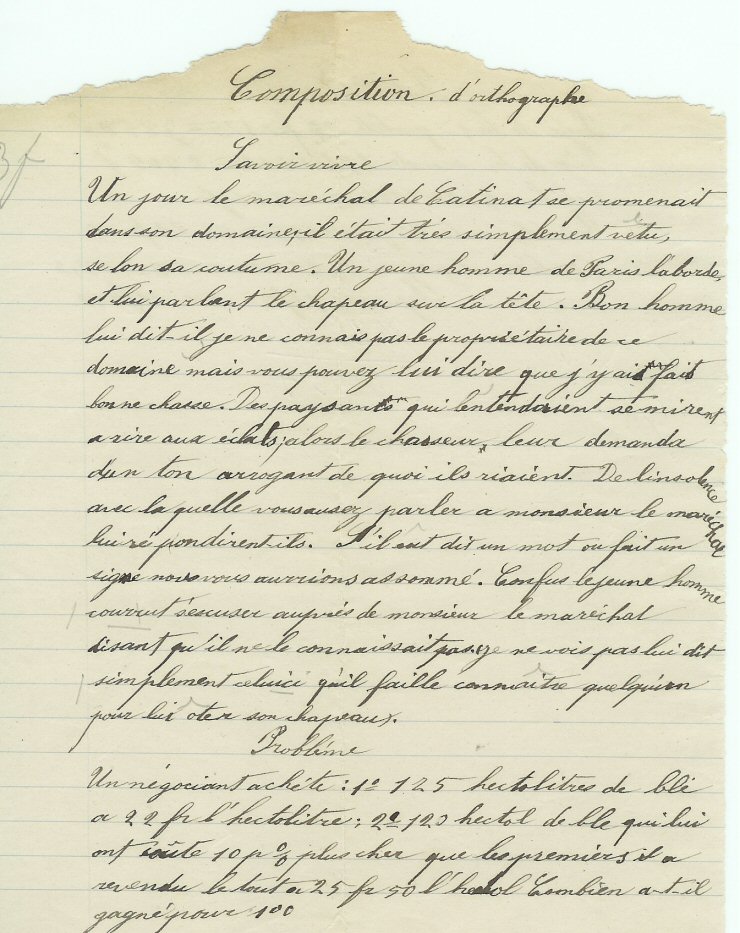 Composition. d'orthographe
Savoir vivre
Un jour le maréchal de Catinat se promenait
dans son domaine, il était très simplement vêtu,
se lon sa coutume. Un jeune homme de Paris l'aborde,
et lui parlant le chapeau sur la tête. Bon homme
lui dit-il je ne connais pas le propriétaire de ce
domaine mais vous pouvez lui dire que j'y ais fait
bonne chasse. Des paysants qui l'entendaient se mirent
a rire aux éclats; alors le chasseur, leur demanda
d'un ton arrogant de quoi ils riaient. De l'insolence
avec la quelle vous ausez parler a monsieur le maréchal
lui ré pondirent ils. S'il eut dit un mot ou fait un
signe nous vous aurrions as sommé. Confus le jeune homme
courrut s'escuser auprès de monsieur le maréchal
disant qu'il ne le connaissait pas. je ne vois pas lui dit
simplement celui ci qu'il faille connaitre quelqu'un
pour lui oter son chapeaux.
Problème
Un négociant achéte : 1º 125 hectolitres de blé
a 22 fr l'hectolitre; 2º 120 hectol de ble qui lui
ont coûte 10 p % plus cher que les premiers il a
revendu le tout a 25 fr 50 l'hectol Combien a-t-il
gagné pour 100